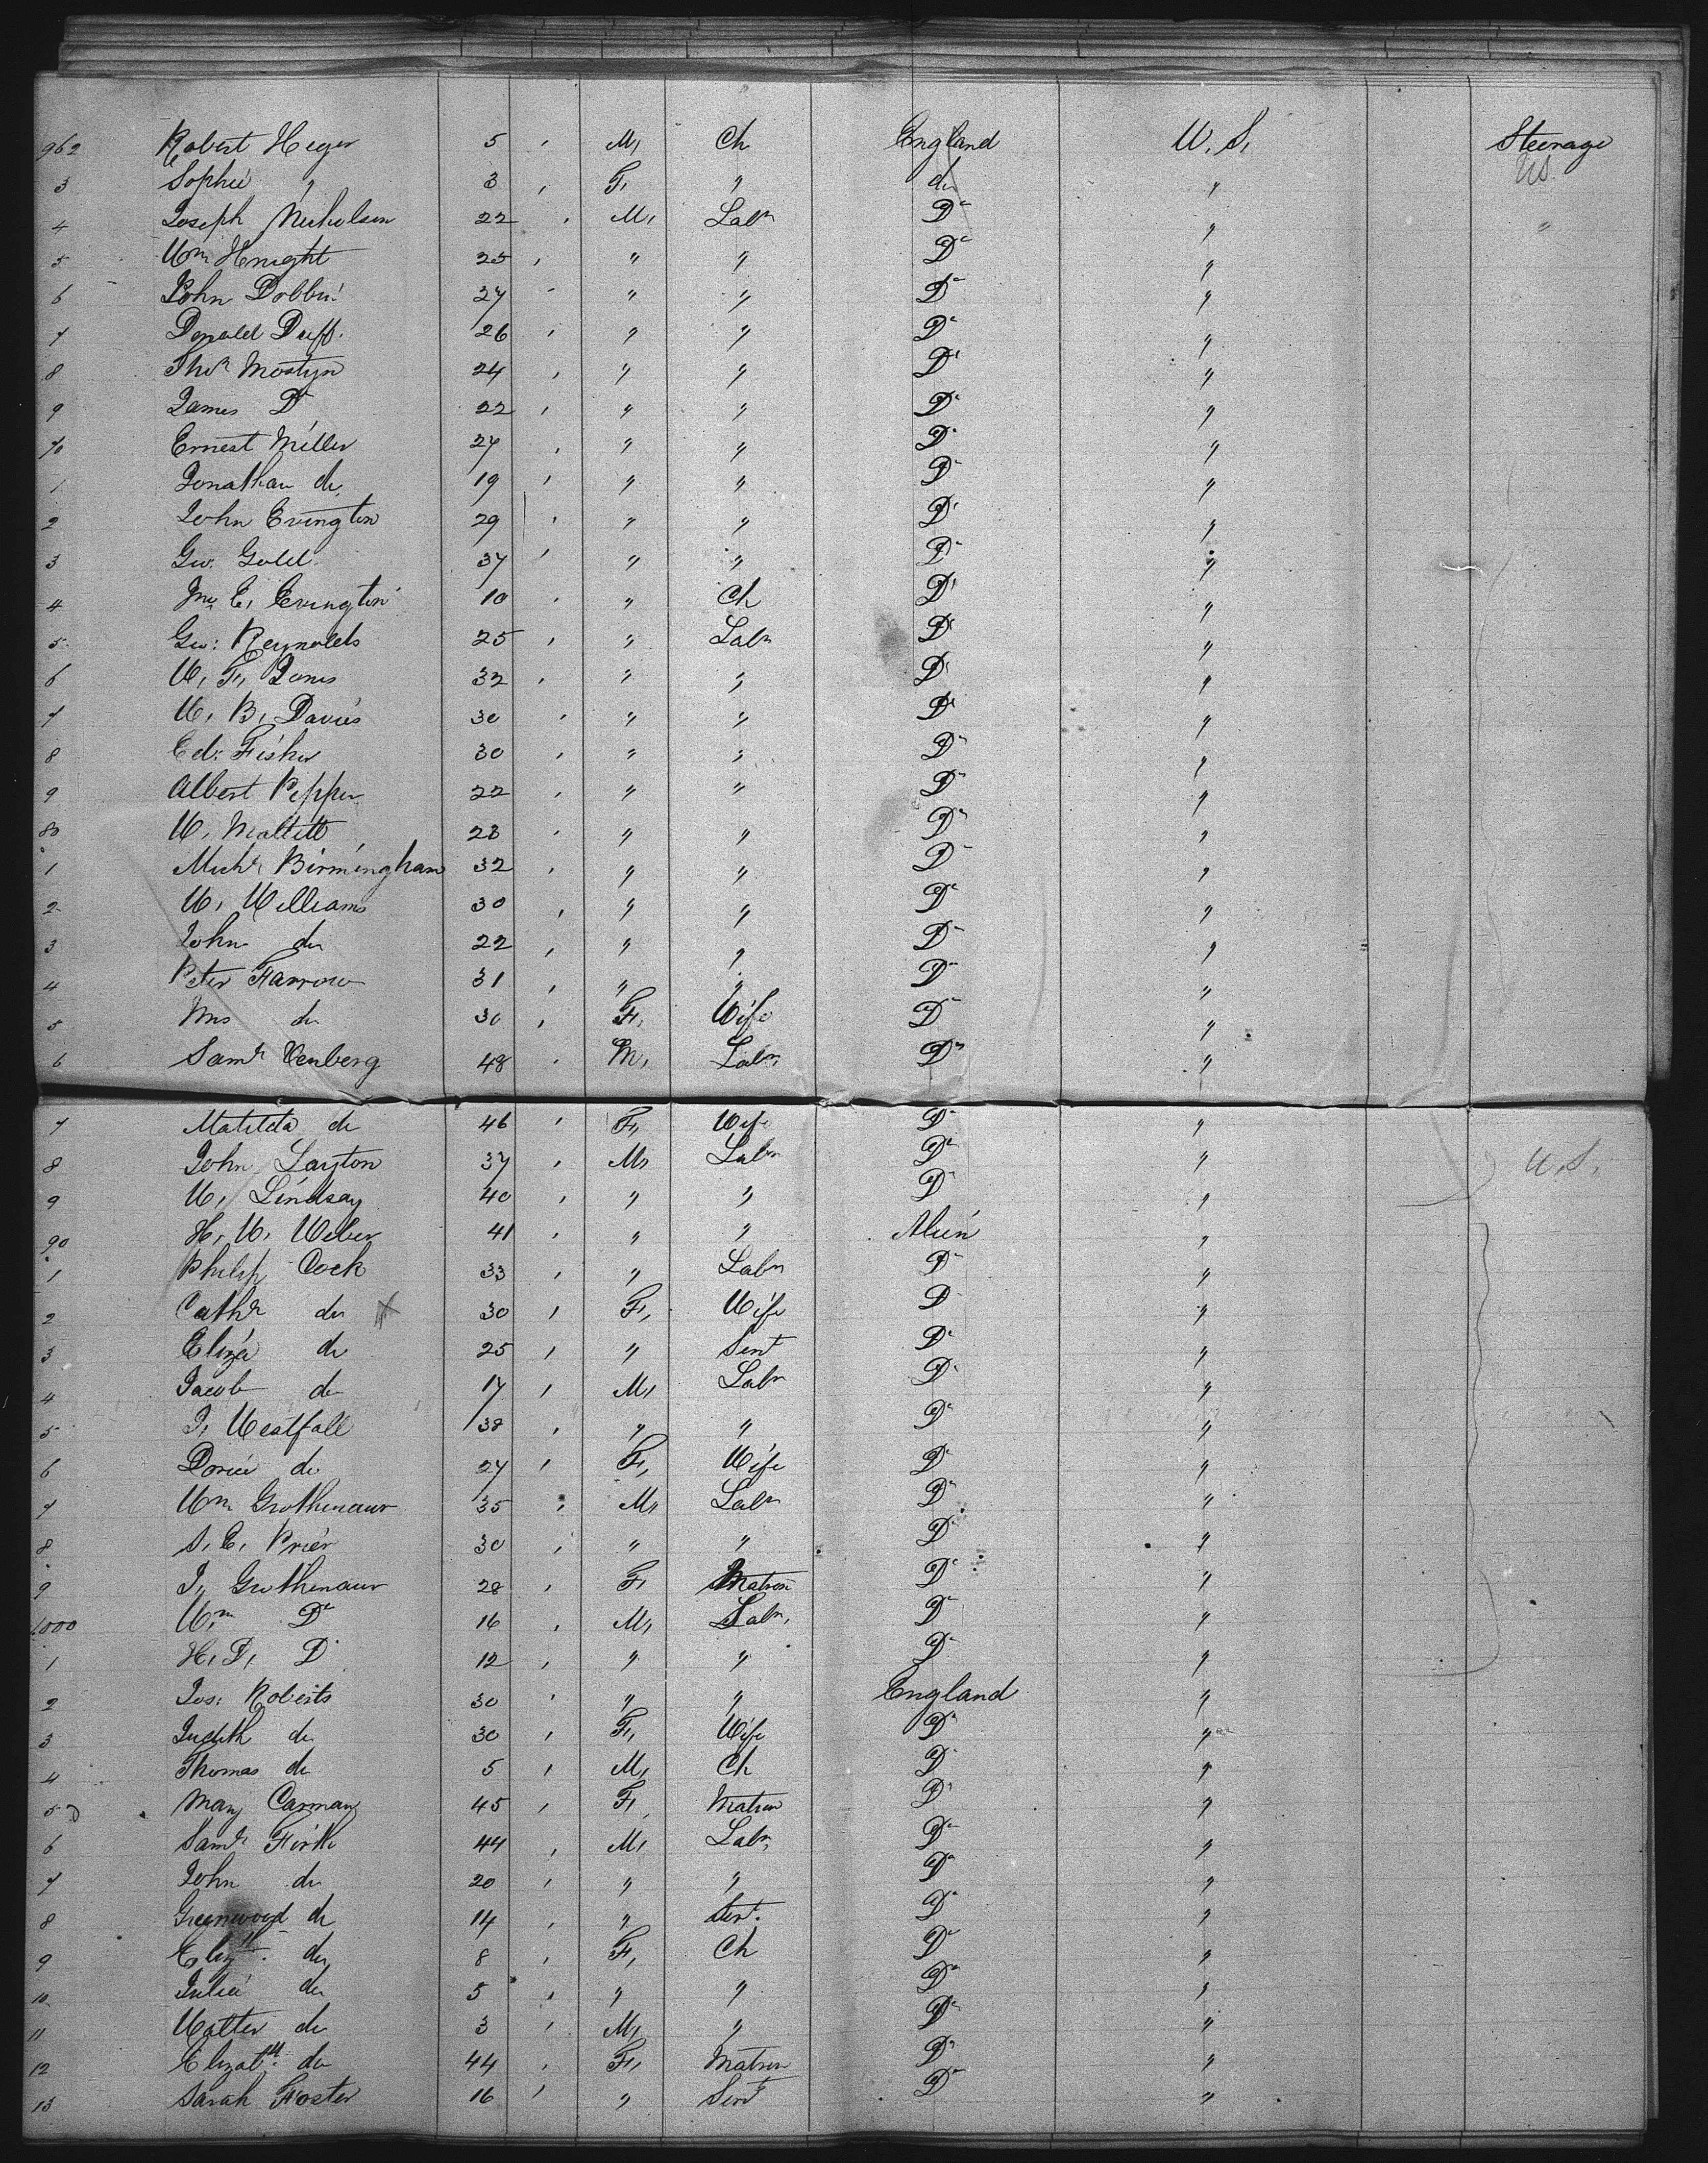 962 Robert Heger 5 , M, Ch England U. S, Steerage
3 Sophie " 3 , F, " do " US.
4 Joseph Nicholson 22 , M, Labr Do " "
5 Wm Knight 25 , " " Do "
6 John Dobbin 27 " " " Do "
7 Donald Duff. 26 , " " Do "
8 Thos Mostyn 24 , " " Do "
9 James Do 22 , " " Do "
70 Ernest Miller 27 , " " Do "
1 Jonathan do 19 , " " Do "
2 John Evington 29 , " " Do "
3 Geo. Gold 37 , " " Do "
4 Jno E, Evington 10 , " Ch Do "
5 Geo: Reynolds 25 , " Labr Do "
6 W, F, Jones 32 , " " Do "
7 W, B, Davies 30 , " " Do "
8 Ed: Fisher 30 , " " Do "
9 Albert Pepper 22 , " " Do "
80 W, 23 , " " Do "
1 Michl Birmingham 32 , " " Do "
2 W, Williams 30 , " " Do "
3 John do 22 , " " Do "
4 Peter Farrow 31 , " " Do "
5 Mrs do 30 , F, Wife Do "
6 Saml Venberg 48 , M, Labr Do "
7 Matilda do 46 , F, Wife Do "
8 John Layton 37 , M, Labr Do " U.S.
9 W, Lindsay 40 , " " Do "
90 H, W, Weber 41 , " " Alien "
1 Philip Cock 33 , " Labr Do "
2 Cathe do X 30 , F, Wife Do "
3 Eliza do 25 , " Servt Do "
4 Jacob do 17 , M, Labr Do "
5 J, Westfall 38 , " " Do "
6 do 27 , F, Wife Do "
7 Wm Grothenaur 35 , M, Labr Do "
8 S, E, Prier 30 , " " Do "
9 J, Grothenaur 28 , F, Matron Do "
1000 Wm Do 16 , M, Labr, Do "
1 H, D, Do 12 , " " Do "
2 Jos: Roberts 30 , " " England "
3 Judith do 30 , F, Wife Do "
4 Thomas do 5 , M, Ch Do "
5 Mary Carman 45 , F, Matron Do "
6 Saml Firth 44 , M, Labr Do "
7 John do 20 , " " Do "
8 Greenwood do 14 , " Servt. Do "
9 Elizth. do 8 , F, Ch Do "
10 Julia do 5 , " " Do "
11 Walter do 3 , M, " Do "
12 Elizabth. do 44 , F, Matron Do "
13 Sarah Foster 16 , " Servt Do "